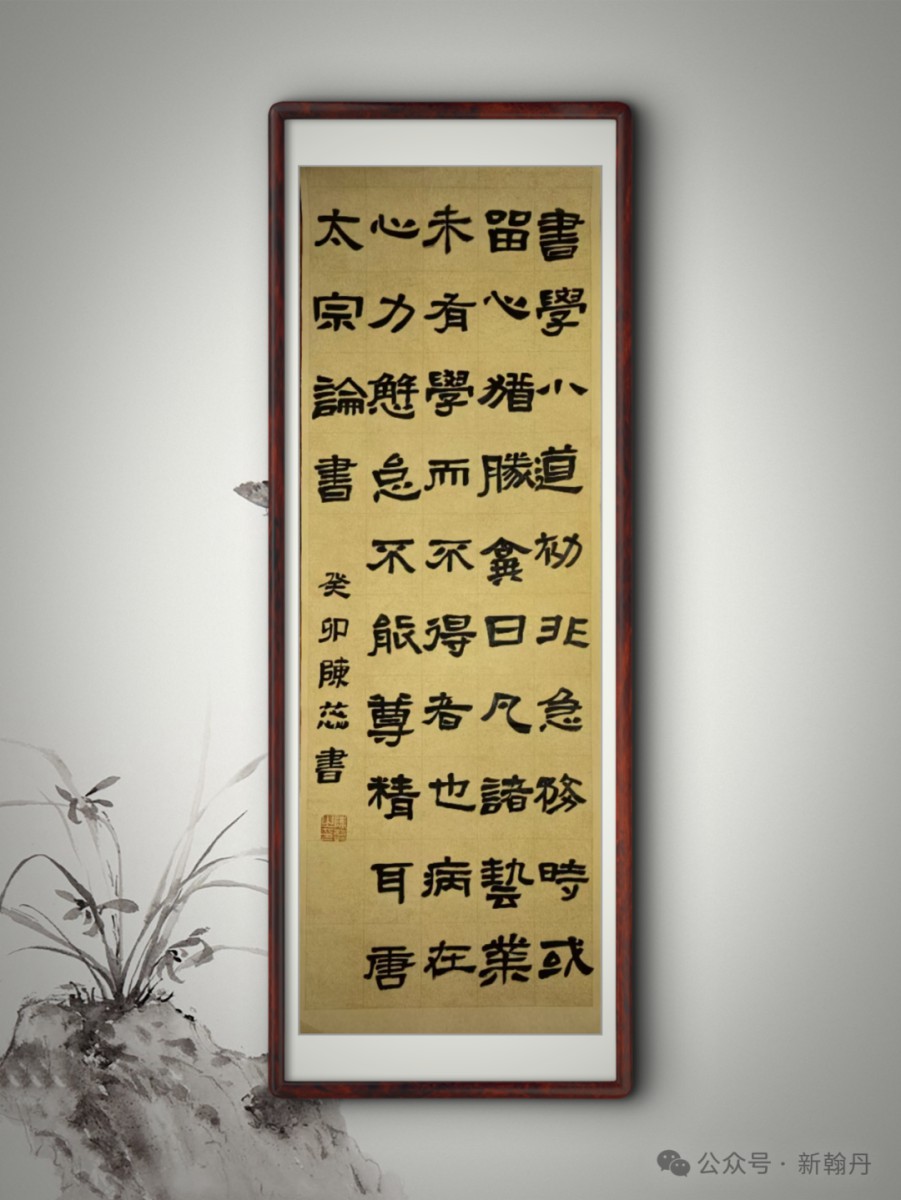 書學小道初非急務時或
留心猶勝棄日凡諸藝業
未有學而不得者也病在
心力懈怠不能尊精耳唐
太宗論書
癸卯陳蕊書
公众号 · 新翰丹